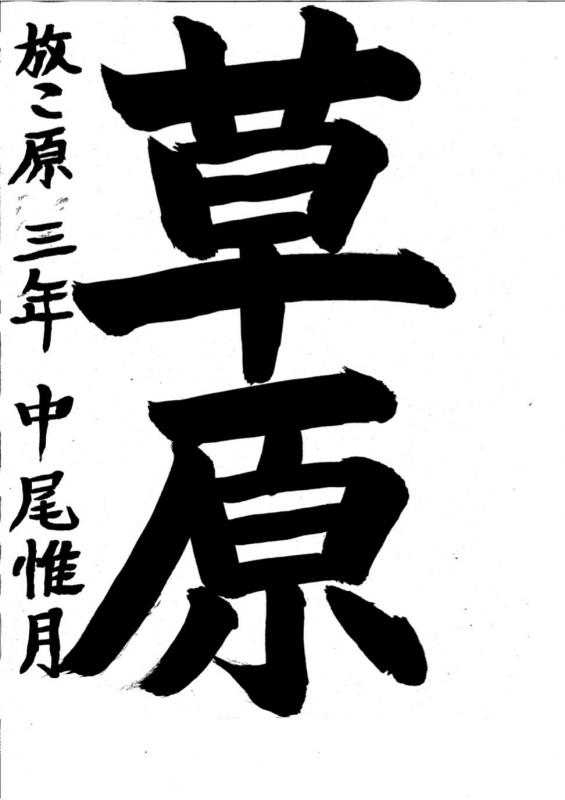 草原
放こ原 三年 中尾惟月